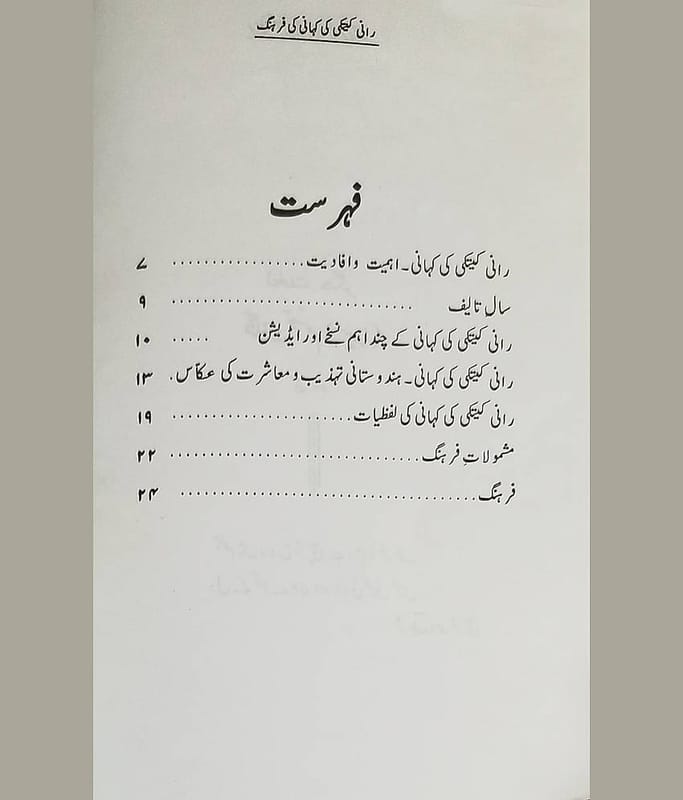 رانی کیتکی کی کہانی کی فرہنگ
فہرست
رانی کیتکی کی کہانی۔ اہمیت وافادیت ................. ۷
سالِ تالیف .............................. ۹
رانی کیتکی کی کہانی کے چند اہم نسخے اور ایڈیشن ..... ۱۰
رانی کیتکی کی کہانی۔ ہندوستانی تہذیب و معاشرت کی عکاس. ۱۳
رانی کیتکی کی کہانی کی لفظیات ....................... ۱۹
مشمولاتِ فرہنگ ................................ ۲۲
فرہنگ ...................................... ۲۴